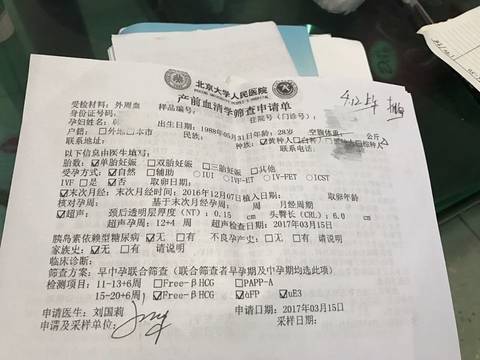 北京大学人民医院
PEKING UNIVERSITY PEOPLE'S HOSPITAL
产前血清学筛查申请单
4.12上午
受检材料：外周血 样品编号： 住院号（门诊号）：
身份证号码：
孕妇姓名： 出生日期：1988年05月31日年龄：28岁 空腹体重： 公斤
户籍：□外地□本市 民族： 种族：☑黄种人□白种人
联系地址： 联系电话：
以下信息由医生填写：
胎数：☑单胎妊娠 □双胎妊娠 □三胎妊娠 □其他
受孕方式：☑自然 □辅助 ○IUI ○IVF-ET ○IV-FET ○ICST
IVF □是 ☑否 取卵日期： 取卵年龄
☑末次月经：末次月经时间：2016年12月07日植入日期：
核对孕周： 基于末次月经孕周： 周 月经周期
☑超声： 颈后透明层厚度（NT）：0.15 cm 头臀长（CRL）：6.0 cm
超声孕周：12+4 周 超声检查日期：2017年03月15日
胰岛素依赖型糖尿病 ☑无 □有 不良孕产史：□无 □有 请说明
家族史：☑无 □有 请说明
临床诊断：
筛查方案：早中孕联合筛查（联合筛查者早孕期及中孕期均选此项）
检测项目：11-13+6周 □Free-βHCG □PAPP-A
15-20+6周 ☑Free-βHCG ☑αFP ☑uE3
申请医生：刘国莉 申请日期：2017年03月15日
申请及采样单位： 采样日期：